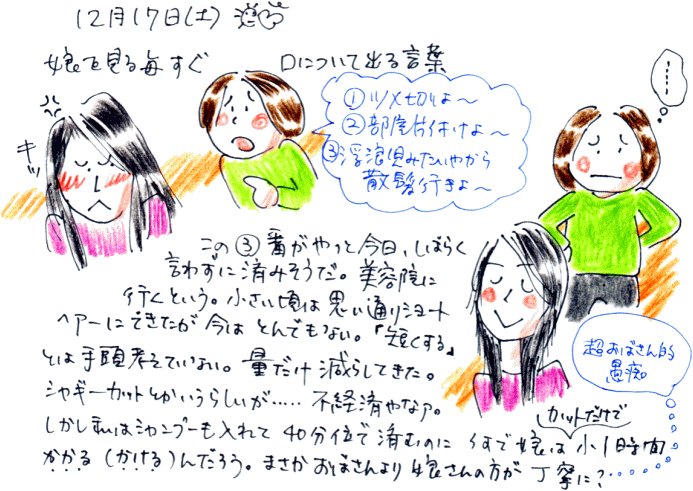 12月17日(土)
娘を見る毎すぐ 口について出る言葉
①ツメ切りよ〜
②部屋片付けよ〜
③浮浪児みたいやから
散髪行きよ〜
キッ
この③番がやっと今日、しばらく
言わずに済みそうだ。美容院に
行くという。小さい頃は思い通りショート
ヘアーにできたが今はとんでもない。「短くする」
とは手頭考えていない。量だけ減らしてきた。
シャギーカットとかいうらしいが…… 不経済やなア。
しかし私はシャンプーも入れて40分位で済むのに 娘は小1時間
カットだけで
かかる(かける)んだろう。まさかおばさんより娘さんの方が丁寧に?
超おばさん的
愚痴。